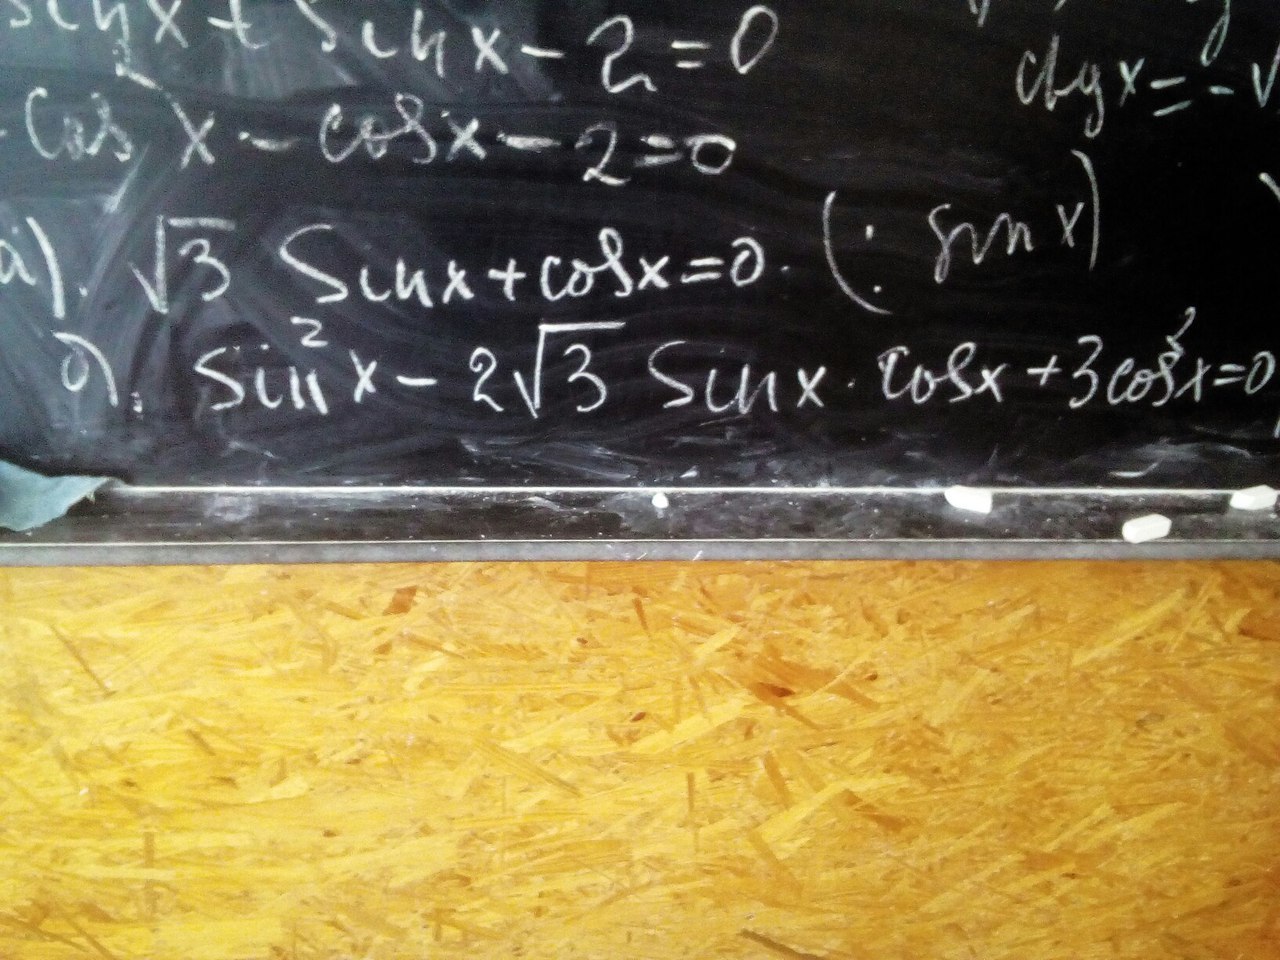 sin x + sin x - 2 = 0
cos² x - cos x - 2 = 0
ctg x = - √
а). √3 Sin x + cos x = 0. (: sin x)
б). Sin² x - 2√3 Sin x · cos x + 3 cos² x = 0